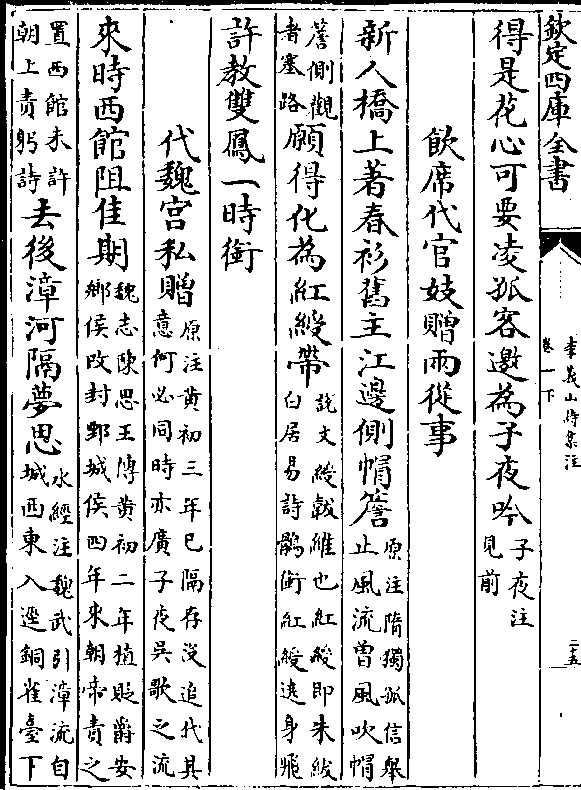 欽定四庫全書
李義山詩集注
卷一下
二十五
得是花心可要凌孤客邀為子夜吟子夜注見前
飲席代官妓贈兩從事
新人橋上著春衫舊主江邊側帽簷原注隋獨孤信舉止風流曾風吹帽
簷側觀者塞路願得化為紅綬帶說文綬韍維也紅綬即朱紱白居易詩鶻銜紅綬遶身飛
許教雙鳳一時銜
代魏宮私贈原注黄初三年已隔存沒追代其意何必同時亦廣子夜吳歌之流
來時西館阻佳期魏志陳思王傳黄初二年植貶爵安鄉侯改封鄄城侯四年來朝帝責之
置西館未許朝上責躬詩去後漳河隔夢思水經注魏武引漳流自城西東入逕銅雀臺下